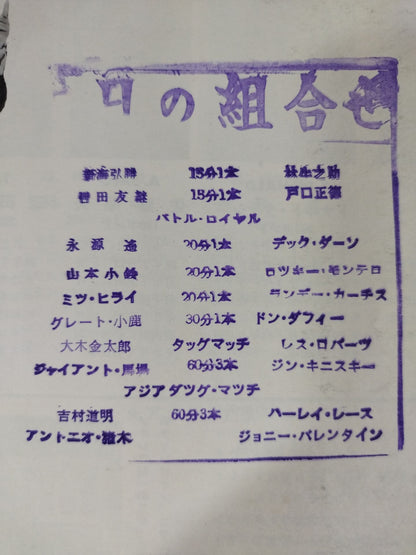 日の組合せ
新海弘勝 15分1本 林牛之助
轡田友継 15分1本 戸口正徳
バトル・ロイヤル
永源遙 20分1本 デック・ダーン
山本小鉄 20分1本 ロツキー・モンテロ
ミツ・ヒライ 20分1本 ランデー・カーチス
グレート・小鹿 30分1本 ドン・ダフィー
大木金太郎 タッグマッチ レス・ロバーツ
ジャイアント・馬場 60分3本 ジン・キニスキー
アジアタツグ・マツチ
吉村道明 60分3本 ハーレイ・レース
アントニオ・猪木 ジョニー・バレンタイン